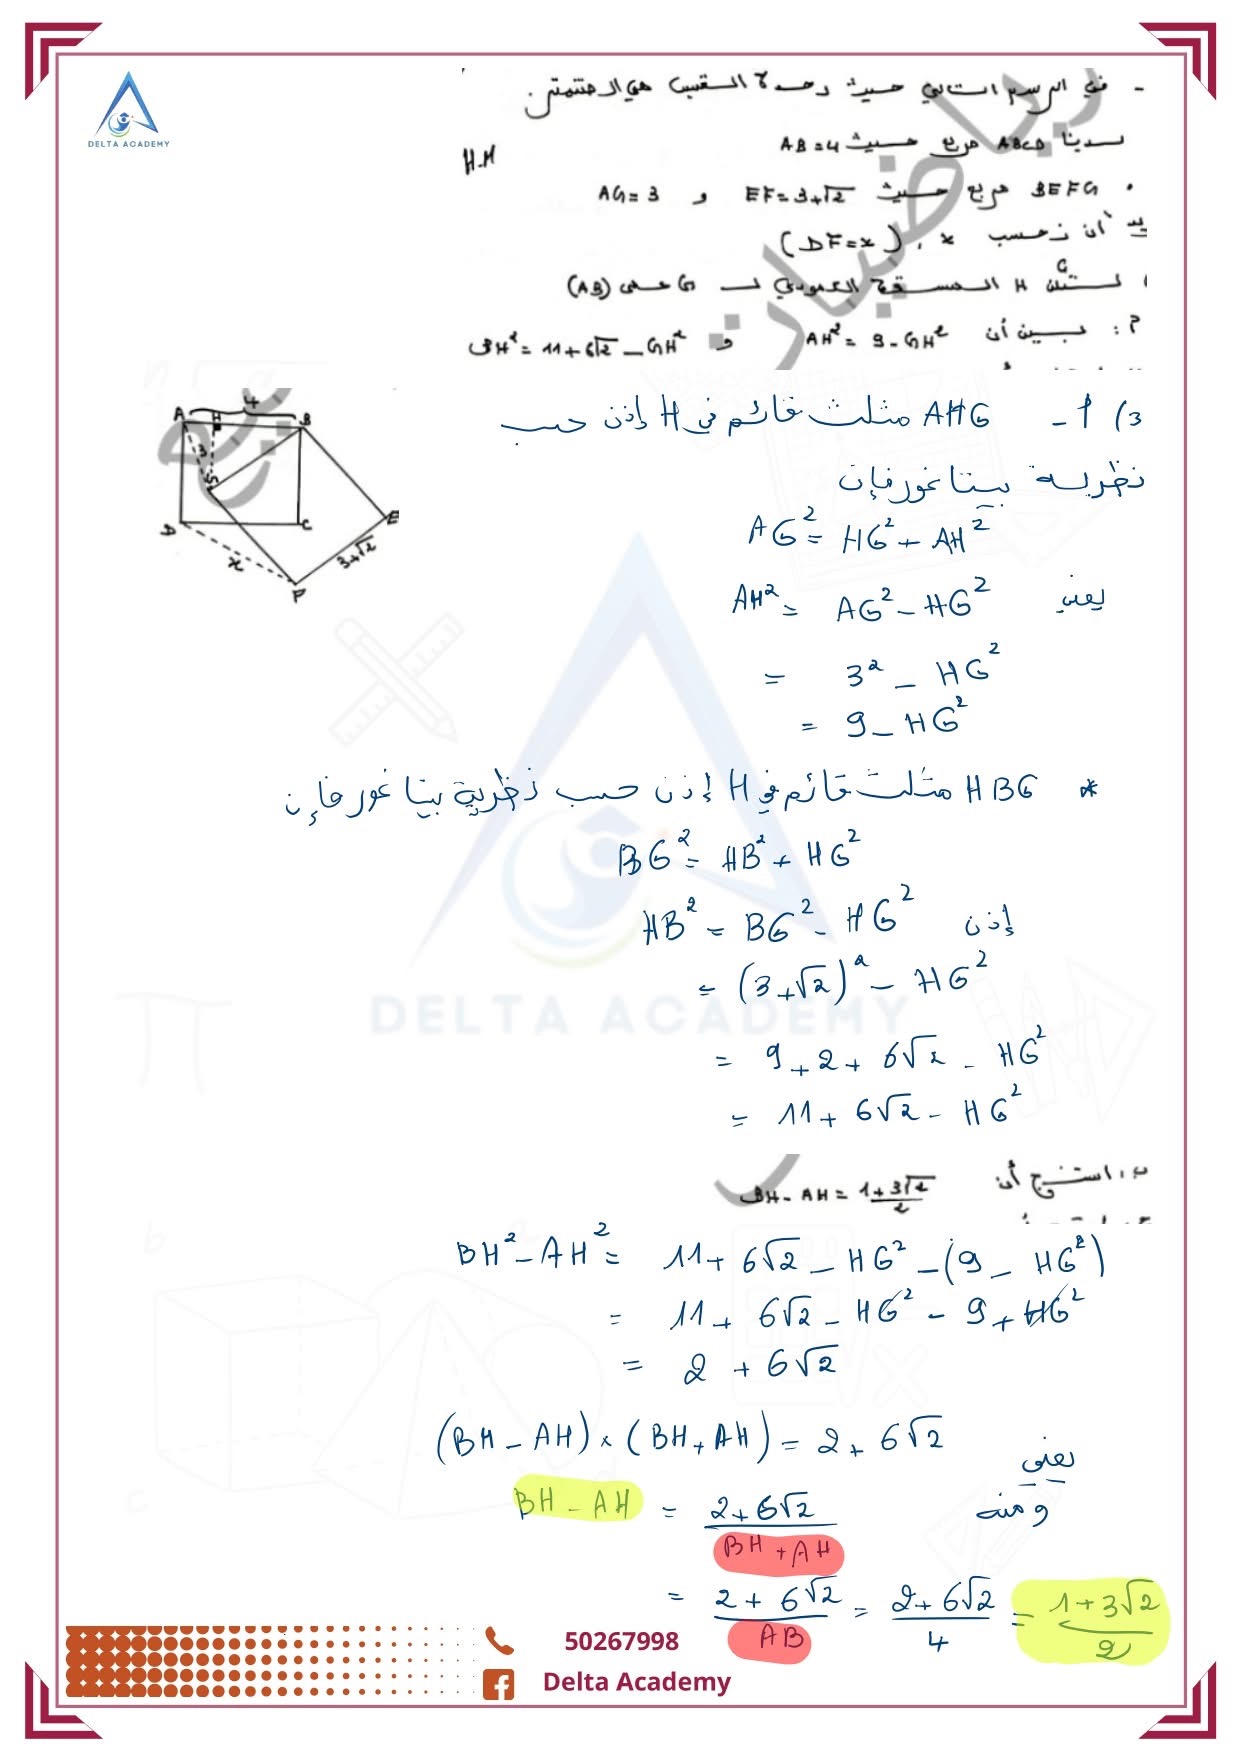 DELTA ACADEMY
- في الرسم التالي حيث وحدة القيس هي الصنتمتر.
لدينا ABCD مربع حيث AB=4
H.H
• BEFG مربع حيث EF=3+√2 و AG=3
أن نحسب x . (DF=x)
H المسقط العمودي لـ G على (AB)
أ : بين أن AH²=9-GH² و BH²=11+6√2-GH²
A H 4 B
3
G
D C E
x 3+√2
F
3) أ- AHG مثلث قائم في H إذن حسب
نظرية بيتاغور فإن
AG²= HG²+AH²
يعني AH²= AG²-HG²
= 3²-HG²
= 9-HG²
* HBG مثلث قائم في H إذن حسب نظرية بيتاغور فإن
BG²= HB²+HG²
إذن HB²= BG²-HG²
= (3+√2)²-HG²
DELTA ACADEMY
= 9+2+6√2-HG²
= 11+6√2-HG²
ب. استنتج أن BH-AH=1+3√2/2
BH²-AH²= 11+6√2-HG²-(9-HG²)
= 11+6√2-HG²-9+HG²
= 2+6√2
(BH-AH)×(BH+AH)=2+6√2
يعني
ومنه BH-AH = 2+6√2/BH+AH
= 2+6√2/AB = 2+6√2/4 = 1+3√2/2
50267998
Delta Academy